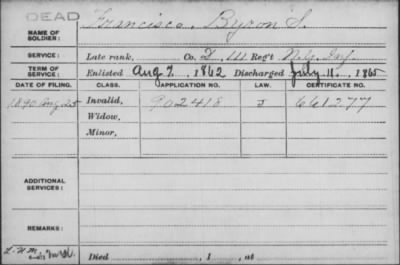 DEAD
NAME OF SOLDIER: Francisco, Byron S.
SERVICE: Late rank, Co. D, 111 Reg't N.Y. Inf.
TERM OF SERVICE: Enlisted Aug 7. 1862 Discharged July 11. 1865
DATE OF FILING. CLASS. APPLICATION NO. LAW. CERTIFICATE NO.
1890 Aug 25 Invalid, 902418 J 661277
Widow,
Minor,
ADDITIONAL SERVICES:
REMARKS:
Died , 1 , at